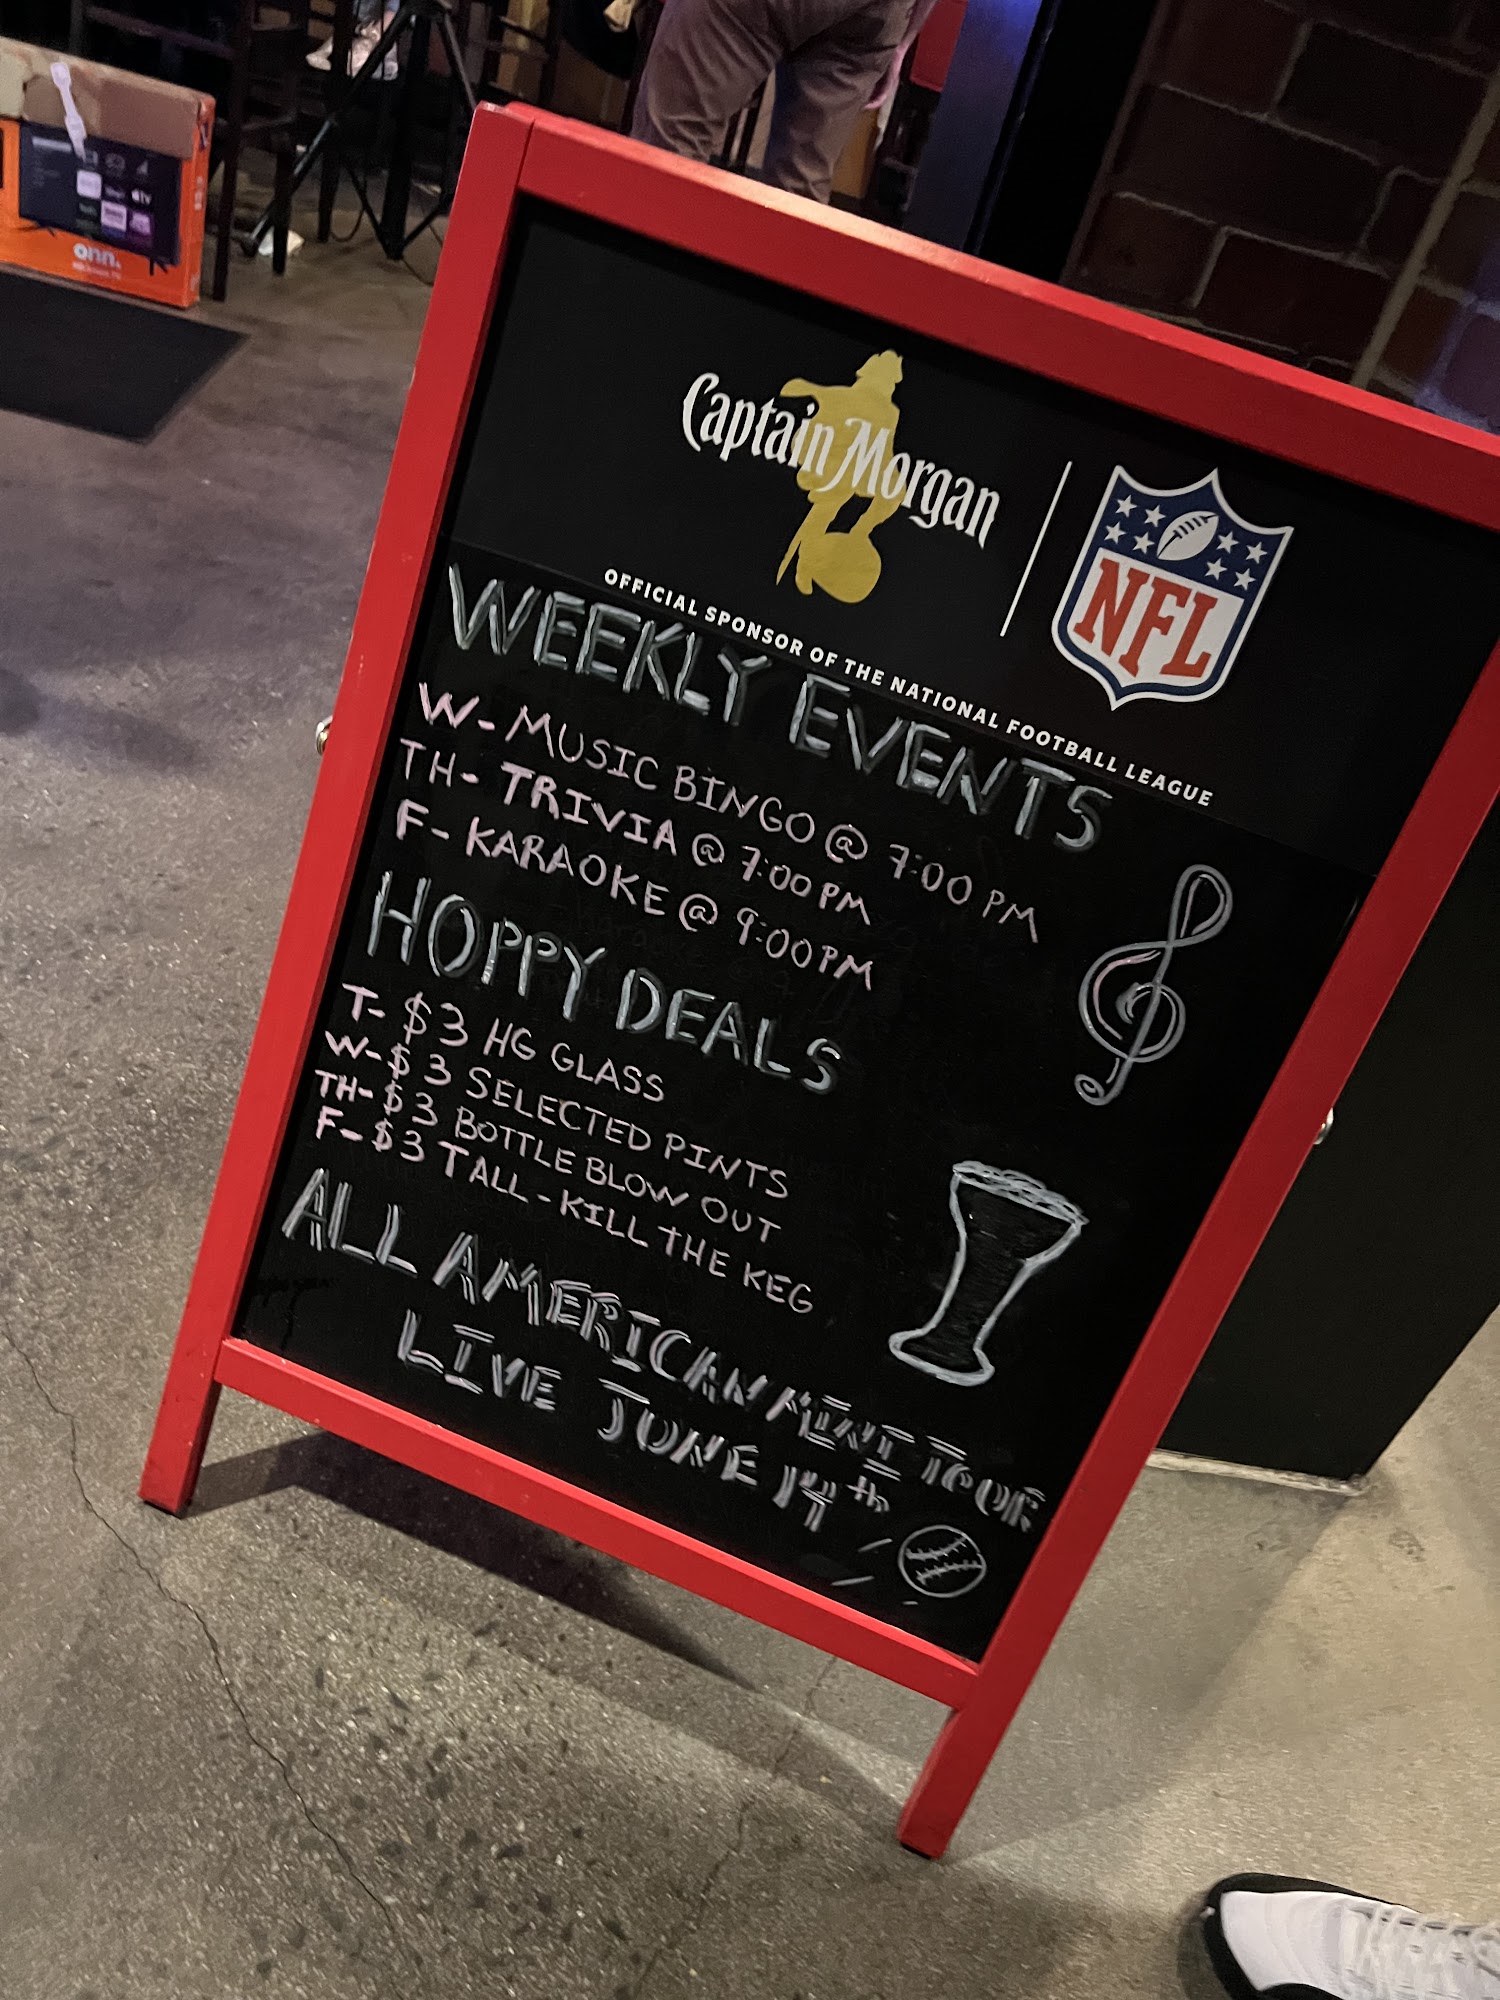 onn.
tv
Captain Morgan
NFL
OFFICIAL SPONSOR OF THE NATIONAL FOOTBALL LEAGUE
WEEKLY EVENTS
W- MUSIC BINGO @ 7:00 PM
TH- TRIVIA @ 7:00 PM
F- KARAOKE @ 9:00 PM
HOPPY DEALS
T- $3 HG GLASS
W- $3 SELECTED PINTS
TH- $3 BOTTLE BLOW OUT
F- $3 TALL - KILL THE KEG
ALL AMERICAN MINI TOUR
LIVE JUNE 14th